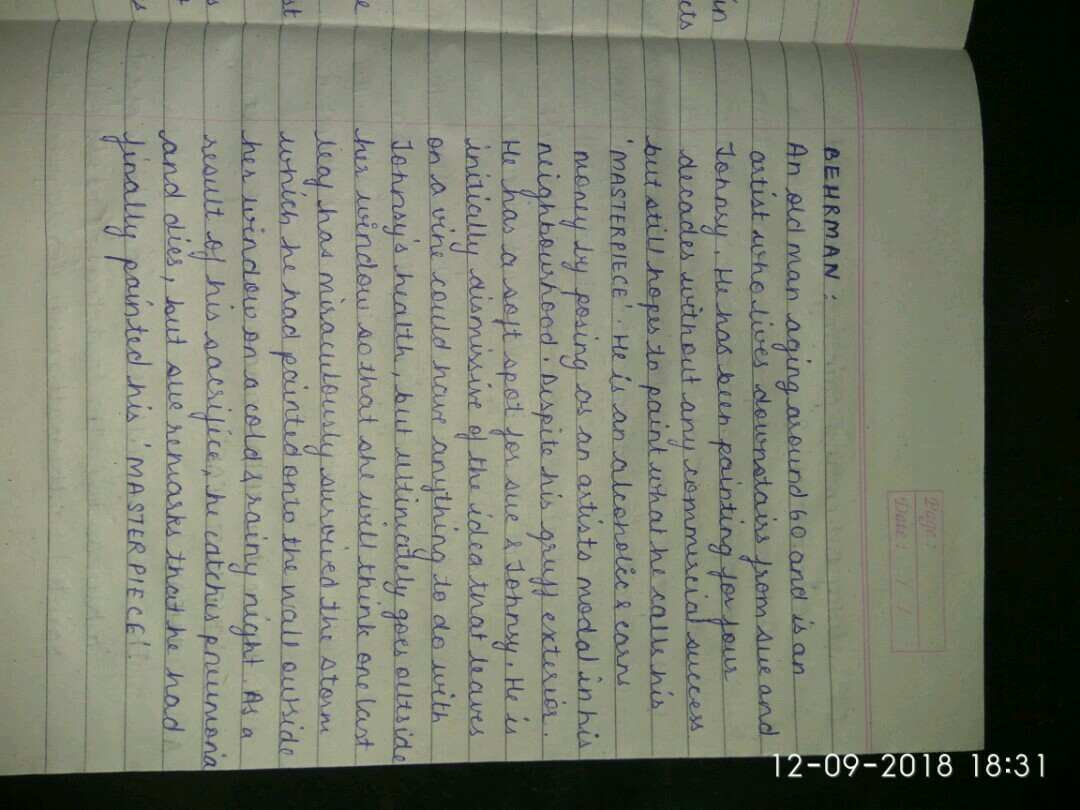 Page :
Date : / /
12-09-2018 18:31
BEHRMAN :
An old man aging around 60 and is an
artist who lives downstairs from sue and
Johnsy. He has been painting for four
decades without any commercial success
but still hopes to paint what he calls his
'MASTERPIECE'. He is an alcoholic & earns
money by posing as an artists modal in his
neighbourhood. Despite his gruff exterior.
He has a soft spot for sue & Johnsy. He is
initially dismissive of the idea that leaves
on a vine could have anything to do with
Johnsy's health, but ultimately goes outside
her window so that she will think one last
leaf has miraculously survived the storm
which he had painted onto the wall outside
her window on a cold & rainy night. As a
result of his sacrifice, he catches pneumona
and dies, but sue remarks that he had
finally painted his 'MASTERPIECE'.
in
cts
e
st
s